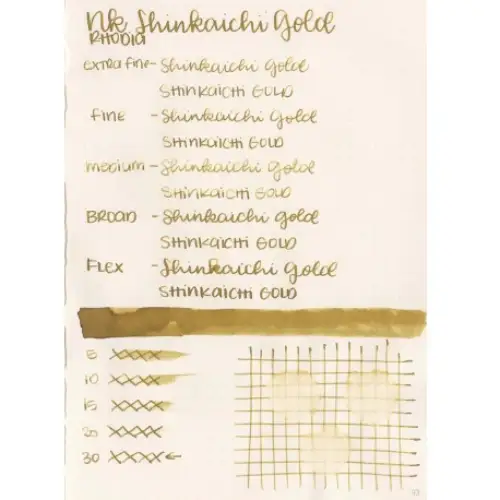 Nk Shinkaichi Gold
RHODIA
extra fine - Shinkaichi Gold
SHINKAICHI GOLD
FINE - Shinkaichi Gold
SHINKAICHI GOLD
medium - Shinkaichi Gold
SHINKAICHI GOLD
BROAD - Shinkaichi Gold
SHINKAICHI GOLD
FLEX - Shinkaichi Gold
SHINKAICHI GOLD
5 XXXX
10 XXXX
15 XXXX
20 XXXX
30 XXXX ←